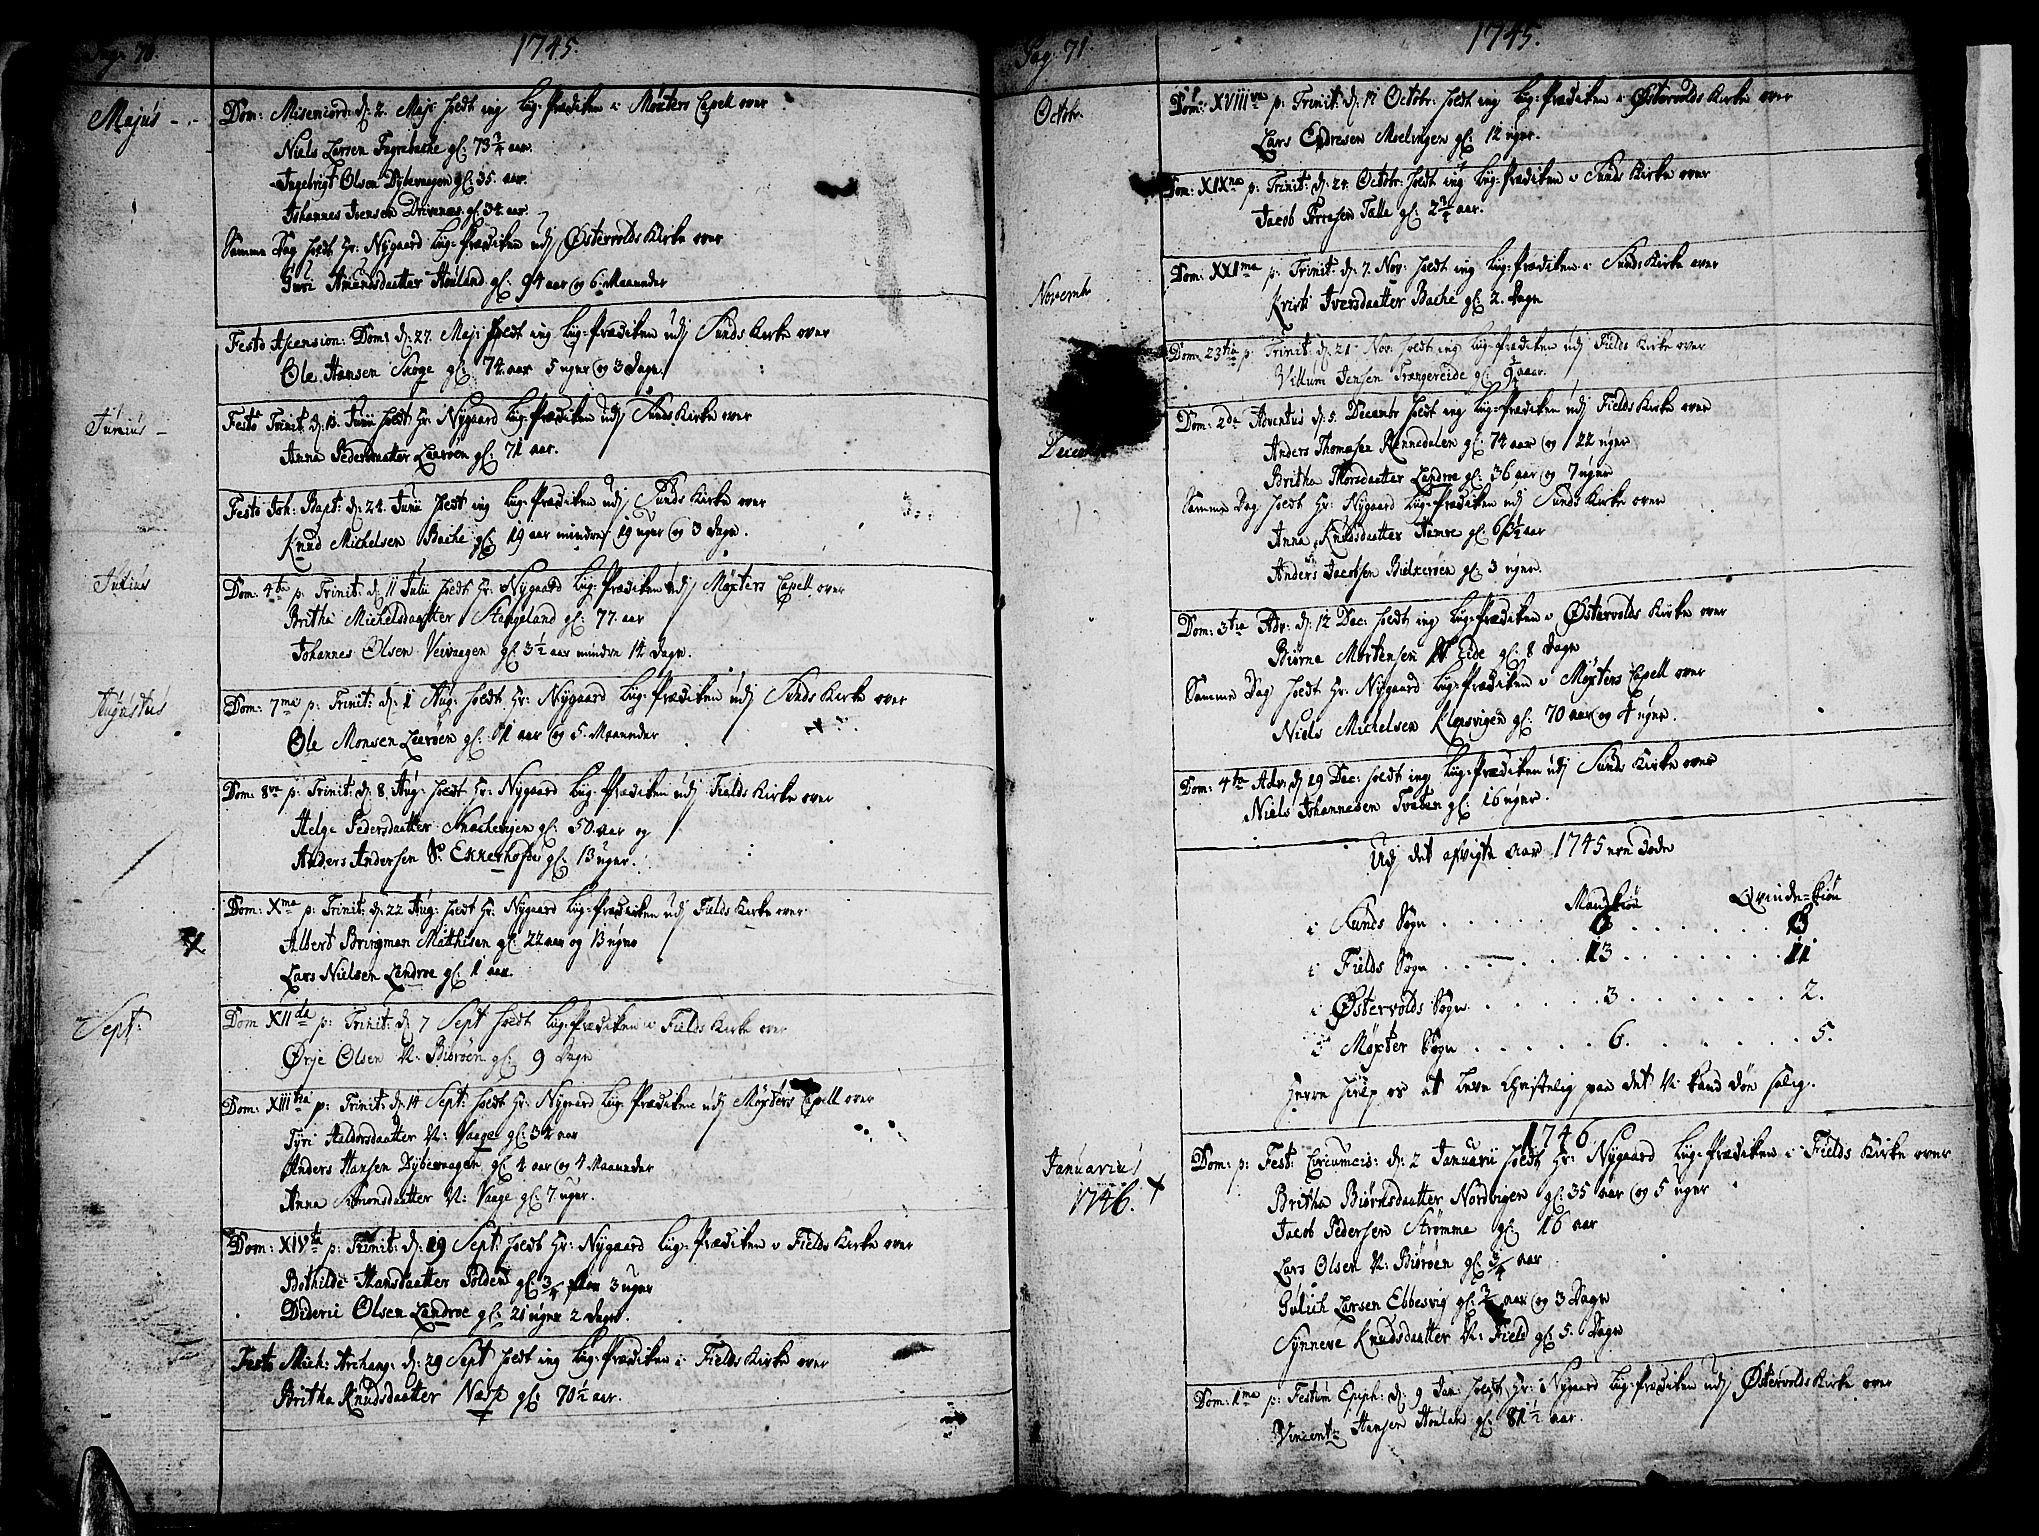 Pag: 70.
1745.
Majus
Dom: Misericord: d: 2. Maji holdt ieg Lig-Prædiken i Møxters Capell over
Niels Larsen Fagrebache gl: 73 3/4 aar.
Ingebrigt Olsen Dybevaagen gl: 35. aar.
Johannes Iversen Drivenes gl: 34. aar.
Samme Dag holdt Hr: Nygaard Lig-Prædiken udj Østervolds Kirke over
Guri Amundsdaatter Houland gl: 94 aar og 6. Maaneder
Festo Ascension: Dom: d: 27. Maji holdt ieg Lig-Prædiken udj Sunds Kirke over
Ole Hansen Skoge gl: 74. aar 5 uger og 3 Dage
Junius
Festo Trinit: d: 13. Junii holdt Hr: Nygaard Lig-Prædiken udj Sunds Kirke over
Anna Pedersdaatter Leerøen gl: 71 aar.
Festo Joh: Bapt: d: 24. Junii holdt ieg Lig-Prædiken udj Sunds Kirke over
Knud Michelsen Bache gl: 19 aar mindre 19 uger og 3 Dage.
Julius
Dom: 4ta p: Trinit: d: 11 Julii holdt Hr: Nygaard Lig-Prædiken udj Møxters Capell over
Britha Michelsdaatter Stangeland gl: 77. aar
Johannes Olsen Veivaagen gl: 3 1/2 aar mindre 14 Dage.
Augustus
Dom: 7ma p: Trinit: d: 1 Aug: holdt Hr: Nygaard Lig-Prædiken udj Sunds Kirke over
Ole Monsen Leerøen gl: 61 aar og 5. Maaneder
Dom: 8va p: Trinit: d: 8. Aug: holdt Hr: Nygaard Lig-Prædiken udj Fields Kirke over
Helge Pedersdaatter gl: 50. aar og
Anders Andersen S: Ekkerhofde gl: 13 uger.
Dom: Xma p: Trinit: d: 22 Aug: holdt Hr: Nygaard Lig-Prædiken udj Fields Kirke over
Albert Bringman Mathisen gl: 22 aar og 13 uger
Lars Nielsen Landroe gl: 1 aar.
Sept:
Dom XIIda p: Trinit: d: 7 Sept holdt Lig-Prædiken i Fields Kirke over
Ørje Olsen N: Biørøen gl: 9 Dage
Dom: XIIItia p: Trinit: d: 14 Sept: holdt Hr: Nygaard Lig-Prædiken udj Møxters Capell over
Tyri Haldorsdaatter N: Vaage gl: 34 aar
Anders Hansen Dybevaagen gl: 4 aar og 4 Maaneder
Anna Simonsdaatter N: Vaage gl: 7 uger.
Dom: XIVta p: Trinit: d: 19 Sept: holdt Hr: Nygaard Lig-Prædiken i Fields Kirke over
Bothilde Hansdaatter Polden gl: 3/4 aar 3 uger
Dideric Olsen Landroe gl: 21 uger 2 Dage.
Festo Mich: Archang: d: 29 Sept holdt ieg Lig-Prædiken i Fields Kirke over
Britha Knudsdaatter Nese gl: 70 1/2 aar.
Pag: 71
1745.
Octobr
Dom: XVIIIva p: Trinit: d: 17 Octobr: holdt ieg Lig-Prædiken i Østervolds Kirke over
Lars Endresen Moelvigen gl: 12 uger.
Dom: XIXna p: Trinit: d: 24. Octobr: holdt ieg Lig-Prædiken i Sunds Kirke over
Jacob Talle gl: 2 3/4 aar.
Novembr
Dom: XXIma p: Trinit: d: 7. Nov: holdt ieg Lig-Prædiken i Sunds Kirke over
Kristi Iversdaatter Bache gl: 2. Dage
Dom: 23tia p: Trinit: d: 21 Nov: holdt ieg Lig-Prædiken udj Fields Kirke over
Villum Jensen Trængereide gl: aar.
Decembr
Dom: 2da Adventus d: 5. Decembr holdt ieg Lig-Prædiken udj Fields Kirke over
Anders Thomæsen Rennedalen gl: 74 aar og 22 uger
Britha Thorsdaatter Landroe gl: 36 aar og 7 uger
Samme Dag holdt Hr: Nygaard Lig-Prædiken udj Sunds Kirke over
Anna Knudsdaatter Hamre gl: 63 1/2 aar
Anders Jacobsen Bielkerøen gl: 3 uger.
Dom: 3tia Adv: d: 12 Dec: holdt ieg Lig-Prædiken i Østervolds Kirke over
Biørne Mortensen N Eide gl: 8 Dage
Samme Dag holdt Hr: Nygaard Lig-Prædiken i Møxters Capell over
Niels Michelsen Klepsvigen gl: 70 aar og 4 uger.
Dom: 4ta Adv: d: 19 Dec: holdt ieg Lig-Prædiken udj Sunds Kirke over
Niels Johannesen Tveten gl: 16 uger.
Udj det afvigte aar 1745 ere døde
Mandkiøn Qvinde-kiøn
i Sunds Sogn 6 8
i Fields Sogn 13 11
i Østervolds Sogn 3 2.
i Møxter Sogn 6. 5.
Herre hielp os at leve Christelig paa det Vi kand døe salig.
1746
Januarius
1746.
Dom: p: Fest: Circumcis: d: 2 Januarii holdt Hr: Nygaard Lig-Prædiken i Fields Kirke over
Britha Biørnsdaatter Nordvigen gl: 35 aar og 5 uger
Jacob Pedersen Strømme gl: 16 aar
Lars Olsen N: Biørøen gl: 3/4 aar
Gulich Larsen Ebbesvig gl: aar og 3 Dage
Synneve Knudsdaatter N: Field gl: 5. Dage
Dom: 1ma p: Festum Epiph: d: 9 Jan: holdt Hr: Nygaard Lig-Prædiken udj Østervolds Kirke over
Vincentz Hansen Houland gl: 81 1/2 aar.